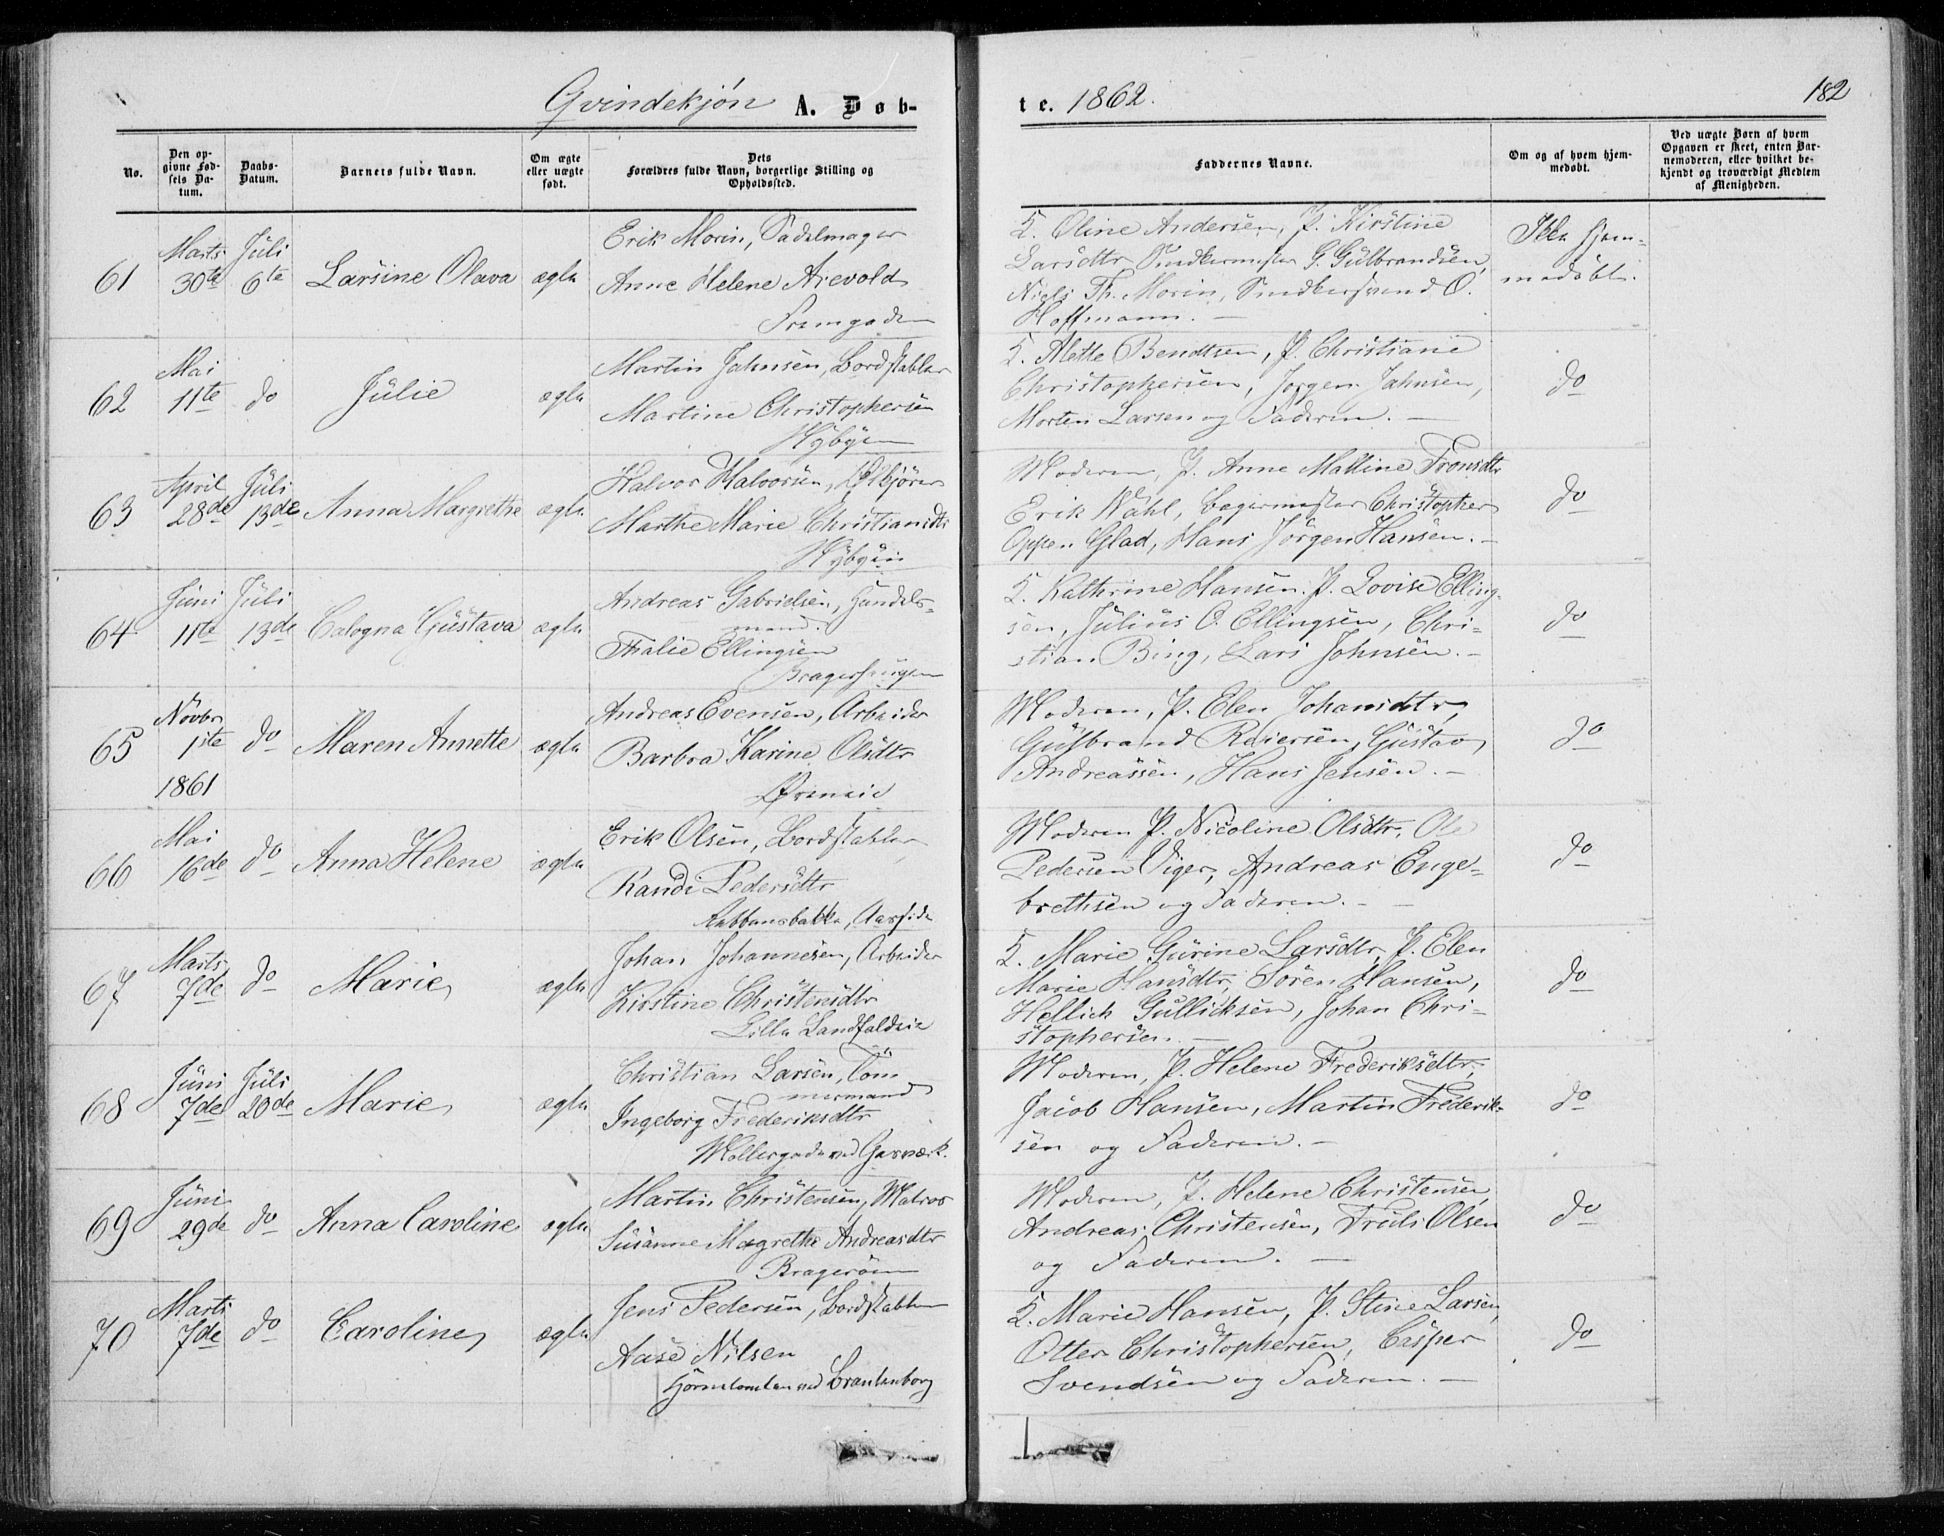 Qvindekjön A. Døb-
No.
Den op-
givne Fød-
sels Da-
tum.
Daabs-
Datum.
Barnets fulde Navn.
Om ægte
eller uægte
født.
Dets
Forældres fulde Navn, borgerlige Stilling og
Opholdssted.
61
Marts
30te
Juli
6te
Larsine Olava
ægte
Erik Morin, Sadelmager
Anne Helene Arevold
62
Mai
11te
do
Julie
ægte
Martin Jahnsen, Bordstabler
Martine Christophersen
Nybyen
63
April
28de
Juli
13de
Anna Margrethe
ægte
Halvor Halvorsen, Ølkjører
Marthe Marie Christiansdtr
Nybyen
64
Juni
11te
Juli
13de
Calogna Gustava
ægte
Andreas Gabrielsen, Handels-
mand.
Thalie Ellingsen
65
Novbr
1ste
1861
do
Maren Annette
ægte
Andreas Evensen, Arbeider
Barbra Karine Olsdtr
Øreneie
66
Mai
16de
do
Anna Helene
ægte
Erik Olsen, Bordstabler
Randi Pedersdtr
67
Marts
7de
do
Marie
ægte
Johan Johannesen, Arbeider
Kirstine Christensdtr
Lille Landfaldeie
68
Juni
7de
Juli
20de
Marie
ægte
Christian Larsen, Töm
mermand
Ingeborg Frederiksdtr
Möllergade ved Gasværk.
69
Juni
29de
do
Anna Caroline
ægte
Martin Christensen, Matros
Susanne Magrethe Andreasdtr
Bragerøen
70
Marts
7de
do
Caroline
ægte
Jens Pedersen, Bordstabler
Aase Nilsen
Hjørnetomten ved Brantenborg
te. 1862.
182
Faddernes Navne.
Om og af hvem hjem-
medøbt.
Ved uægte Børn af hvem
Opgaven er skeet, enten Bar-
nemoderen, eller hvilket be-
kjendt og troværdigt Medlem
af Menigheden.
K. Oline Andersen, P. Kirstine
Larsdtr Snedkermester G. Gulbrandsen,
Niels Th. Morin, Snedkersvend O.
Hoffmann. —
Ikke hjem-
medöbt.
K. Mette Bendtsen, P. Christiane
Christophersen, Jörgen Jahnsen,
Morten Larsen og Faderen. —
do
Moderen, P. Anne Mattine Tronsdtr
Erik Wahl, Bagermester Christopher
Oppen Glad, Hans Jörgen Hansen. —
do
K. Kathrine Hansen. P. Lovise Elling-
sen, Julius O. Ellingsen, Chri-
stian Bing, Lars Johnsen. —
do
Moderen, P. Elen Johansdtr,
Gulbrand Reiersen, Gustav
Andreassen, Hans Jensen. —
do
Moderen P. Nicoline Olsdtr, Ole
Pedersen Viger, Andreas Enge-
brethsen og Faderen. —
do
K. Marie Gurine Larsdtr, P. Elen
Marie Hansdtr, Sören Hansen,
Hellich Gullicksen, Johan Chri-
stophersen. —
do
Moderen, P. Helene Frederiksdtr,
Jacob Hansen, Martin Frederik-
sen og Faderen. —
do
Moderen, P. Helene Christensen,
Andreas Christensen, Truls Olsen
og Faderen. —
do
K. Marie Hansen, P. Stine Larsen,
Otter Christophersen, Casper
Svendsen og Faderen. —
do